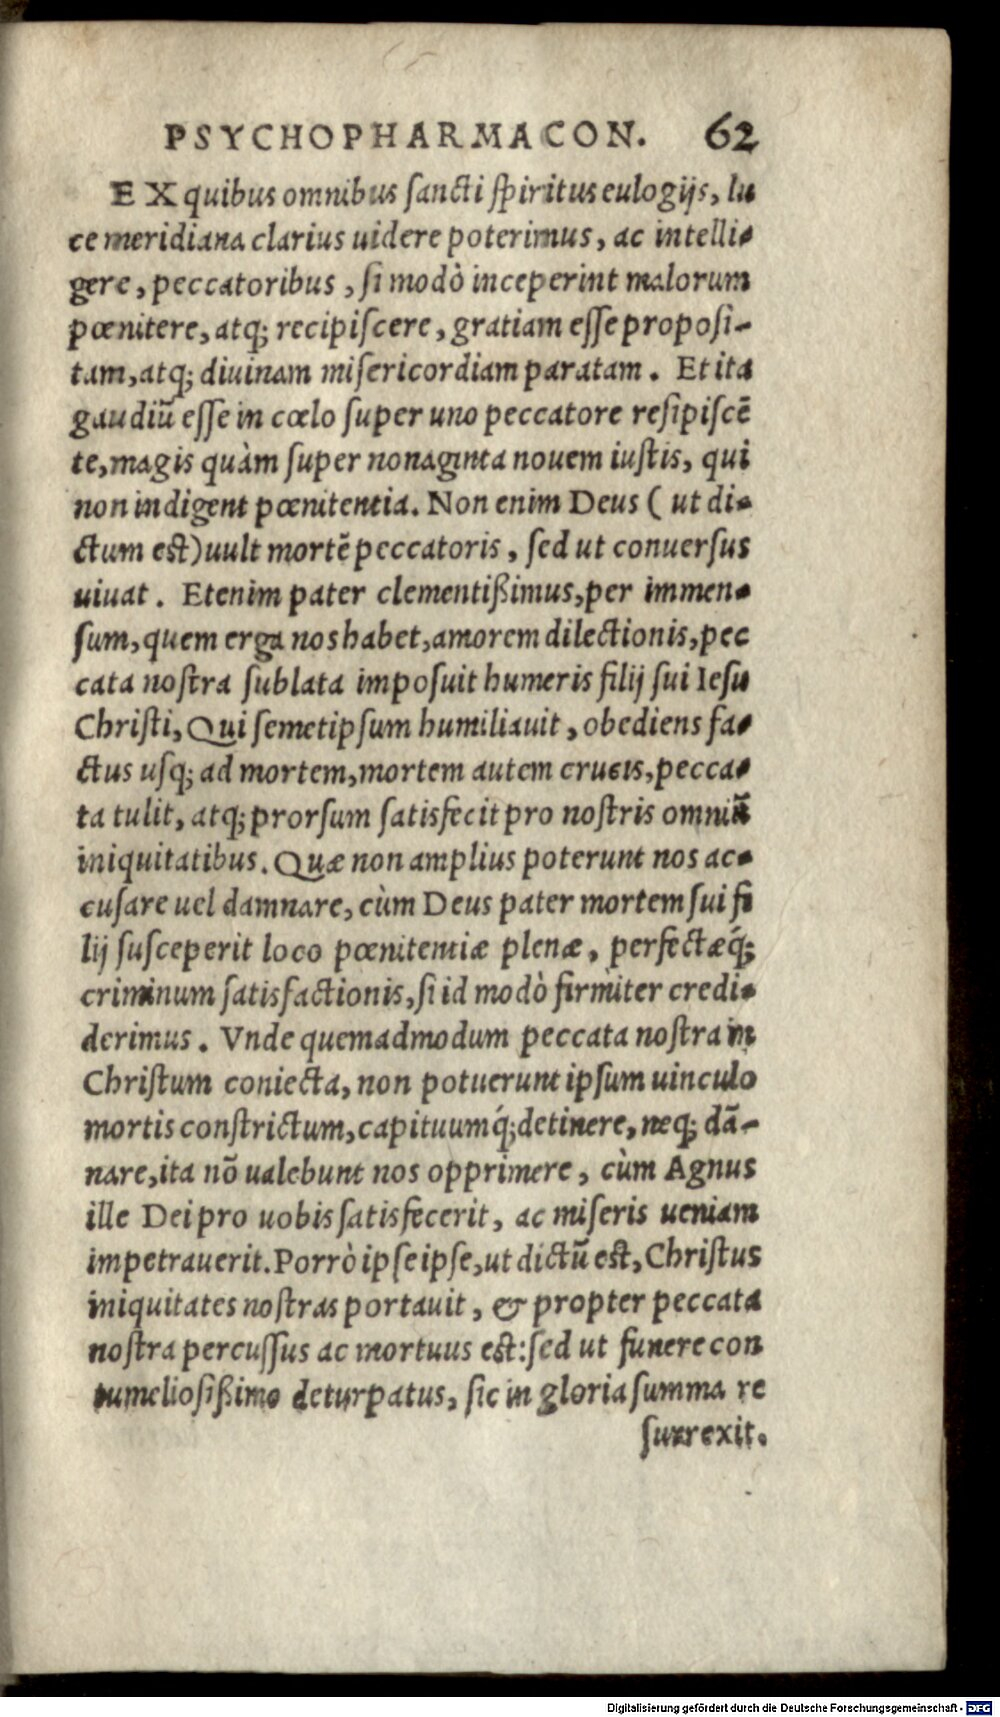 PSYCHOPHARMACON. 62
EX quibus omnibus sancti spiritus eulogijs, lu
ce meridiana clarius uidere poterimus, ac intelli-
gere, peccatoribus, si modò inceperint malorum
pœnitere, atq; recipiscere, gratiam esse proposi-
tam, atq; diuinam misericordiam paratam. Et ita
gaudiū esse in cœlo super uno peccatore resipiscē
te, magis quàm super nonaginta nouem iustis, qui
non indigent pœnitentia. Non enim Deus (ut di-
ctum est) uult mortē peccatoris, sed ut conuersus
uiuat. Etenim pater clementißimus, per immen-
sum, quem erga nos habet, amorem dilectionis, pec
cata nostra sublata imposuit humeris filij sui Iesu
Christi, Qui semetipsum humiliauit, obediens fa-
ctus usq; ad mortem, mortem autem crucis, pecca-
ta tulit, atq; prorsum satisfecit pro nostris omniū
iniquitatibus. Quæ non amplius poterunt nos ac-
cusare uel damnare, cùm Deus pater mortem sui fi
lij susceperit loco pœnitentiæ plenæ, perfectæq́;
criminum satisfactionis, si id modò firmiter credi-
derimus. Vnde quemadmodum peccata nostra in
Christum coniecta, non potuerunt ipsum uinculo
mortis constrictum, capituumq́; detinere, neq; dā-
nare, ita nō ualebunt nos opprimere, cùm Agnus
ille Dei pro uobis satisfecerit, ac miseris ueniam
impetrauerit. Porrò ipse ipse, ut dictū est, Christus
iniquitates nostras portauit, & propter peccata
nostra percussus ac mortuus est: sed ut funere con
tumeliosißimo deturpatus, sic in gloria summa re
surrexit.
Digitalisierung gefördert durch die Deutsche Forschungsgemeinschaft - DFG